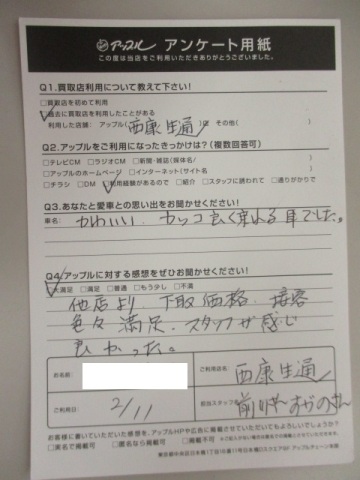 アップル アンケート用紙
この度は当店をご利用いただきありがとうございました。
Q1.買取店利用について教えて下さい!
□買取店を初めて利用
□過去に買取店を利用したことがある
利用した店舗: アップル(西康生通)店 その他( )
Q2.アップルをご利用になったきっかけは?(複数回答可)
□テレビCM □ラジオCM □新聞・雑誌(媒体名/ )
□アップルのホームページ □インターネット(サイト名 )
□チラシ □DM □利用経験があるので □紹介 □スタッフに誘われて □通りがかりで
Q3.あなたと愛車との思い出をお聞かせください!
車名: かわいい、カッコ良く乗れる車でした。
Q4.アップルに対する感想をぜひお聞かせください!
□満足 □満足 □普通 □もう少し □不満
他店より、下取価格、接客
色々満足、スタッフが感じ
良かった。
お名前
ご利用店名 西康生通
ご利用日 2/11
担当スタッフ名
お客様に書いていただいた感想を、アップルHPや広告に掲載させていただいてもよろしいでしょうか?
□実名で掲載可 □匿名なら掲載可 □掲載不可